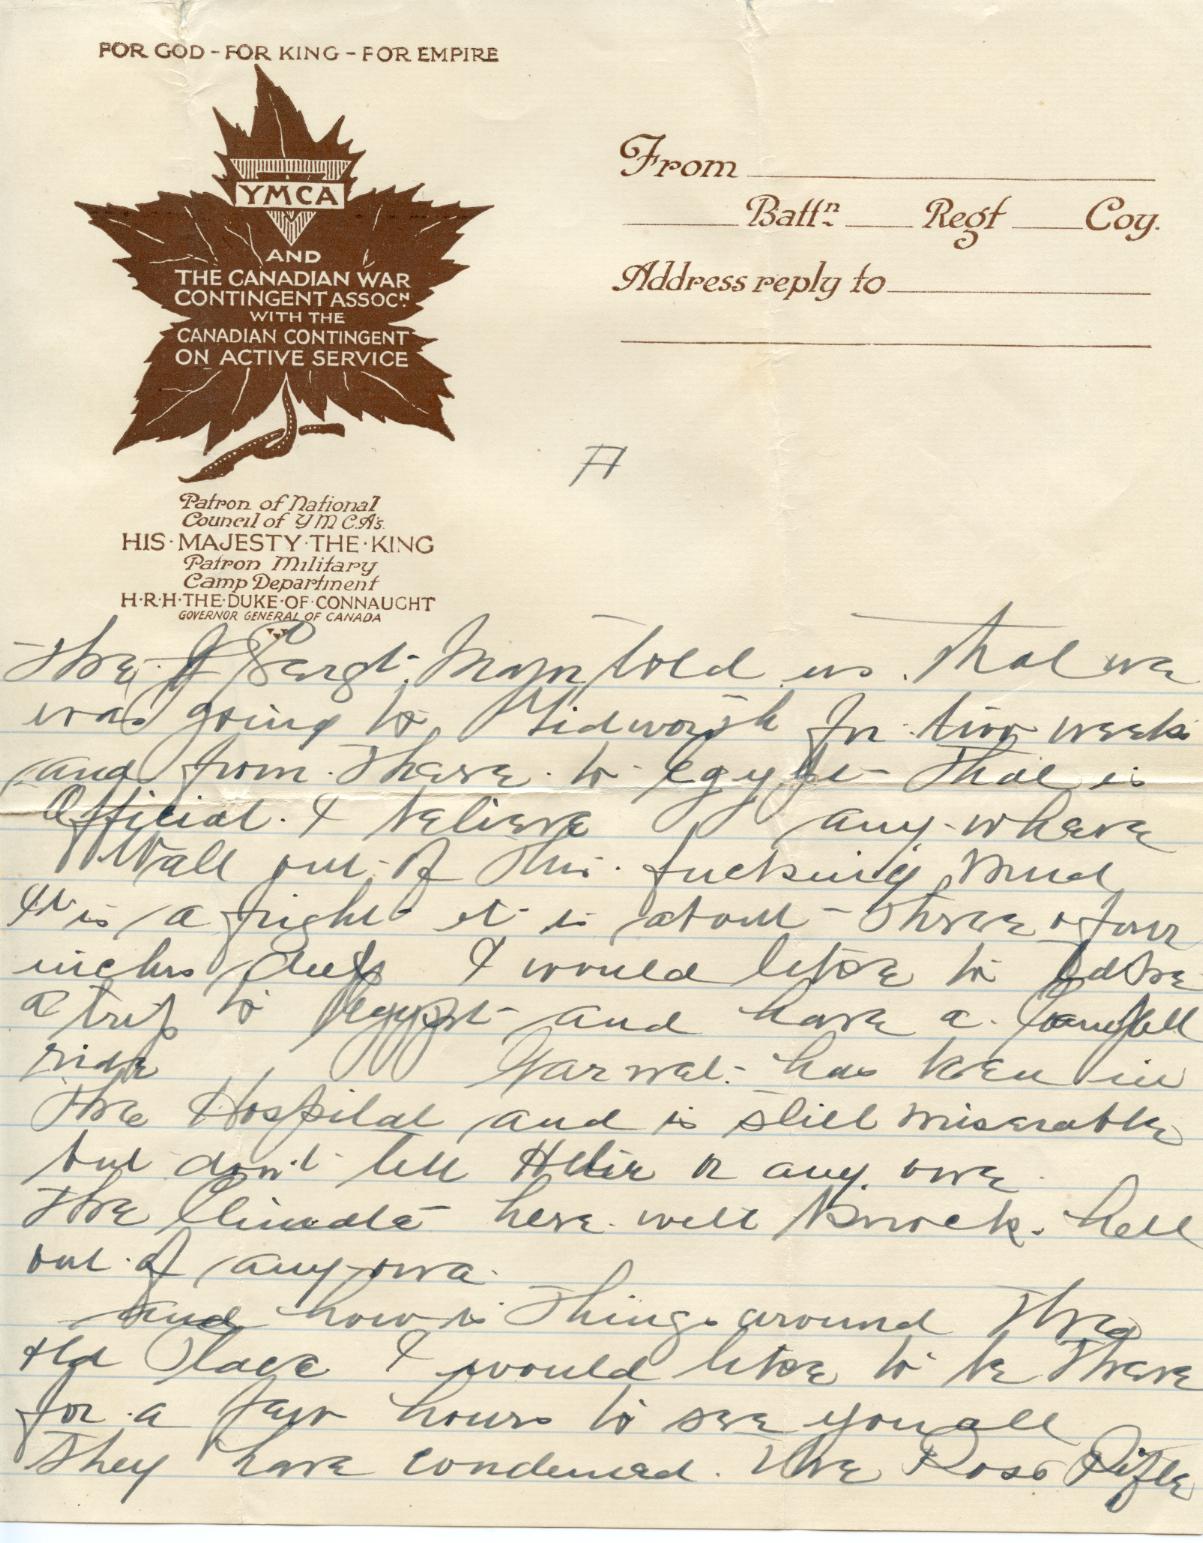 FOR GOD - FOR KING - FOR EMPIRE
YMCA
AND
THE CANADIAN WAR
CONTINGENT ASSOCN
WITH THE
CANADIAN CONTINGENT
ON ACTIVE SERVICE
Patron of National
Council of Y.M.C.A's.
HIS·MAJESTY·THE·KING
Patron Military
Camp Department
H·R·H·THE·DUKE·OF·CONNAUGHT
GOVERNOR GENERAL OF CANADA
From
Battn Regt Coy.
Address reply to
The Sargt. Major told us that we
was going to Tidworth for two weeks
and from there to Egypt that is
Official. I believe any-where
all out of this fucking mud
It is a fright it is about three or four
inches deep I would like to take
a trip to Egypt and have a
ride has been in
the Hospital and is still miserable
but don't tell or any one
The Climate here will knock hell
out of any-one
and how is Things around the
Old Place I would like to be there
for a few hours to see you all
They have condemed. The Ross Rifle